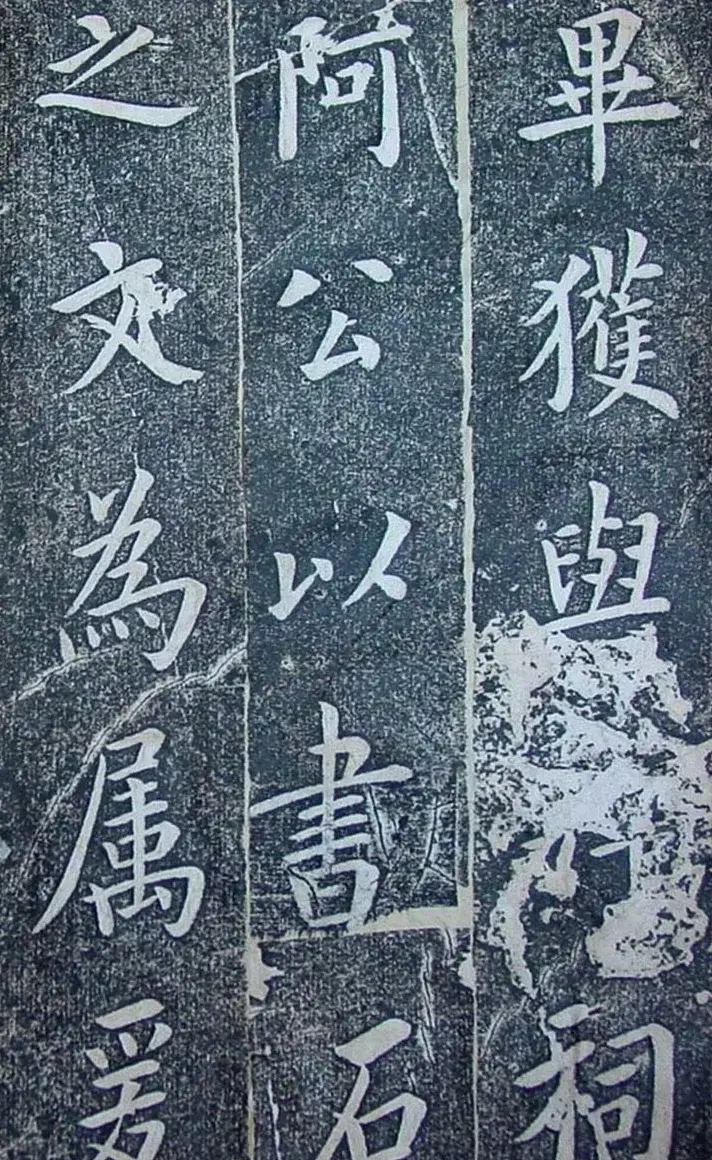 畢獲與祠
阿公以書石
之文為属爰